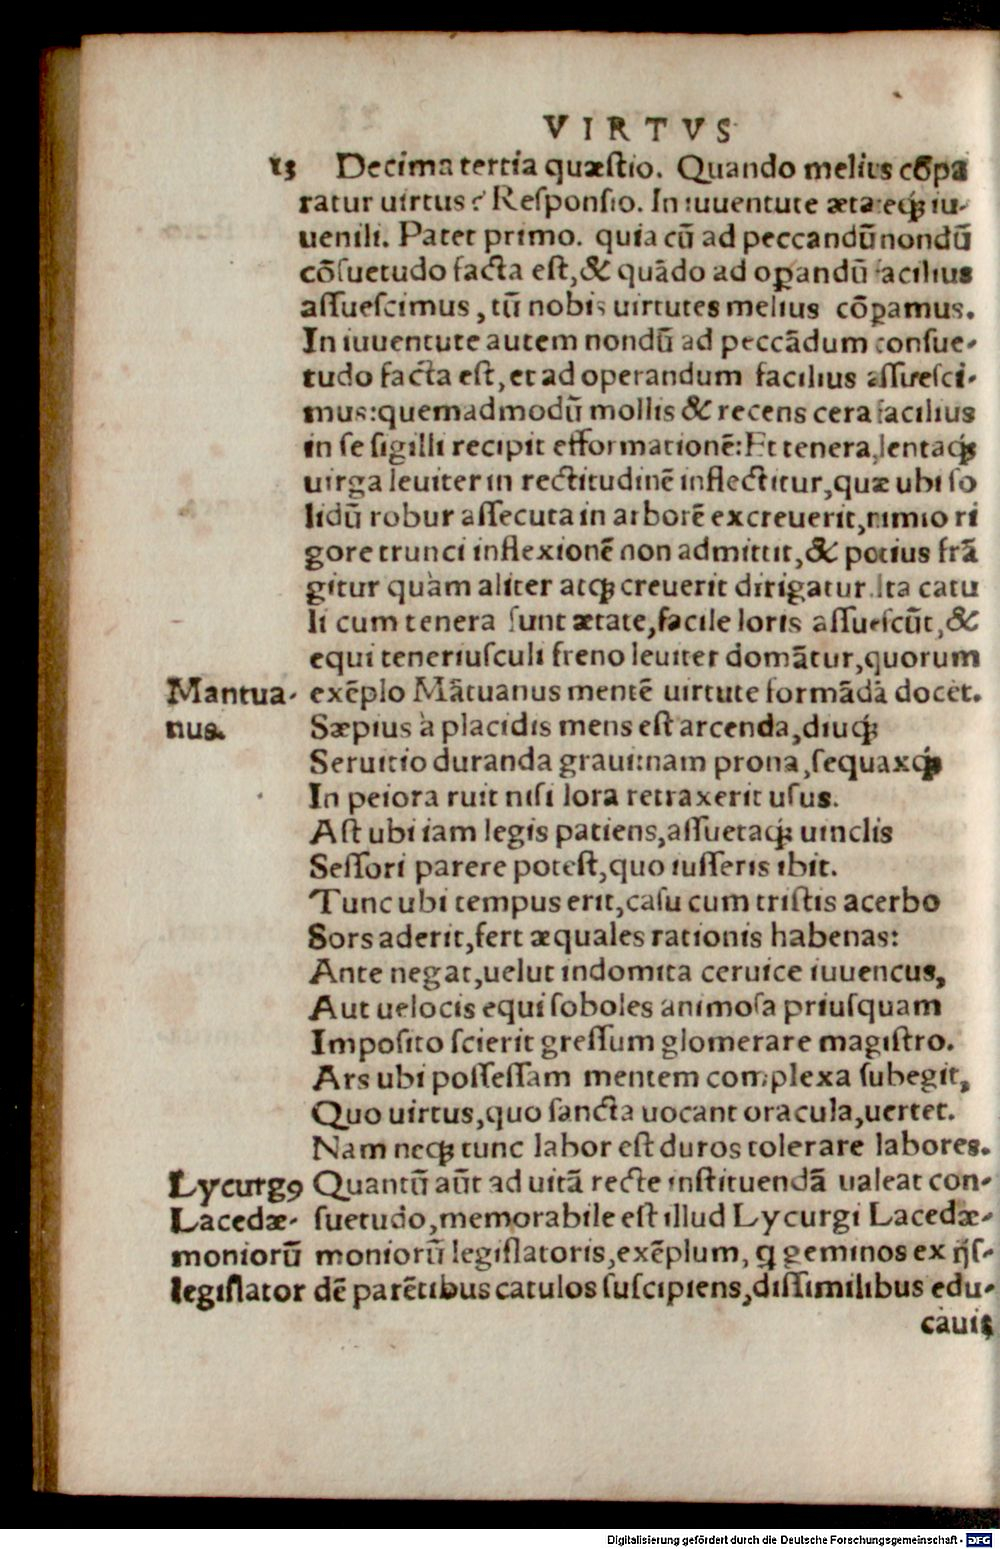 VIRTVS
13 Decima tertia quæstio. Quando melius cōpa
ratur uirtus? Responsio. In iuuentute ætateq́; iu-
uenili. Patet primo. quia cū ad peccandū nondū
cōsuetudo facta est, & quādo ad oꝑandū facilius
assuescimus, tū nobis uirtutes melius cōꝑamus.
In iuuentute autem nondū ad peccādum consue-
tudo facta est, et ad operandum facilius assuesci-
mus: quemadmodū mollis & recens cera facilius
in se sigilli recipit efformationē: Et tenera, lentaq́;
uirga leuiter in rectitudinē inflectitur, quæ ubi so
lidū robur assecuta in arborē excreuerit, nimio ri
gore trunci inflexionē non admittit, & potius frā
gitur quàm aliter atq; creuerit dirigatur. Ita catu
li cum tenera sunt ætate, facile loris assuescūt, &
equi teneriusculi freno leuiter domātur, quorum
Mantua- exēplo Mātuanus mentē uirtute formādā docet.
nus. Sæpius à placidis mens est arcenda, diuq́;
Seruitio duranda graui: nam prona, sequaxq́;
In peiora ruit nisi lora retraxerit usus.
Ast ubi iam legis patiens, assuetaq́; uinclis
Sessori parere potest, quo iusseris ibit.
Tunc ubi tempus erit, casu cum tristis acerbo
Sors aderit, fert æquales rationis habenas:
Ante negat, uelut indomita ceruice iuuencus,
Aut uelocis equi soboles animosa priusquam
Imposito scierit gressum glomerare magistro.
Ars ubi possessam mentem complexa subegit,
Quo uirtus, quo sancta uocant oracula, uertet.
Nam neq; tunc labor est duros tolerare labores.
Lycurgꝰ Quantū aūt ad uitā recte instituendā ualeat con-
Lacedæ- suetudo, memorabile est illud Lycurgi Lacedæ-
moniorū moniorū legislatoris, exēplum, q geminos ex ijs-
legislator dē parētibus catulos suscipiens, dissimilibus edu-
cauit
Digitalisierung gefördert durch die Deutsche Forschungsgemeinschaft - DFG